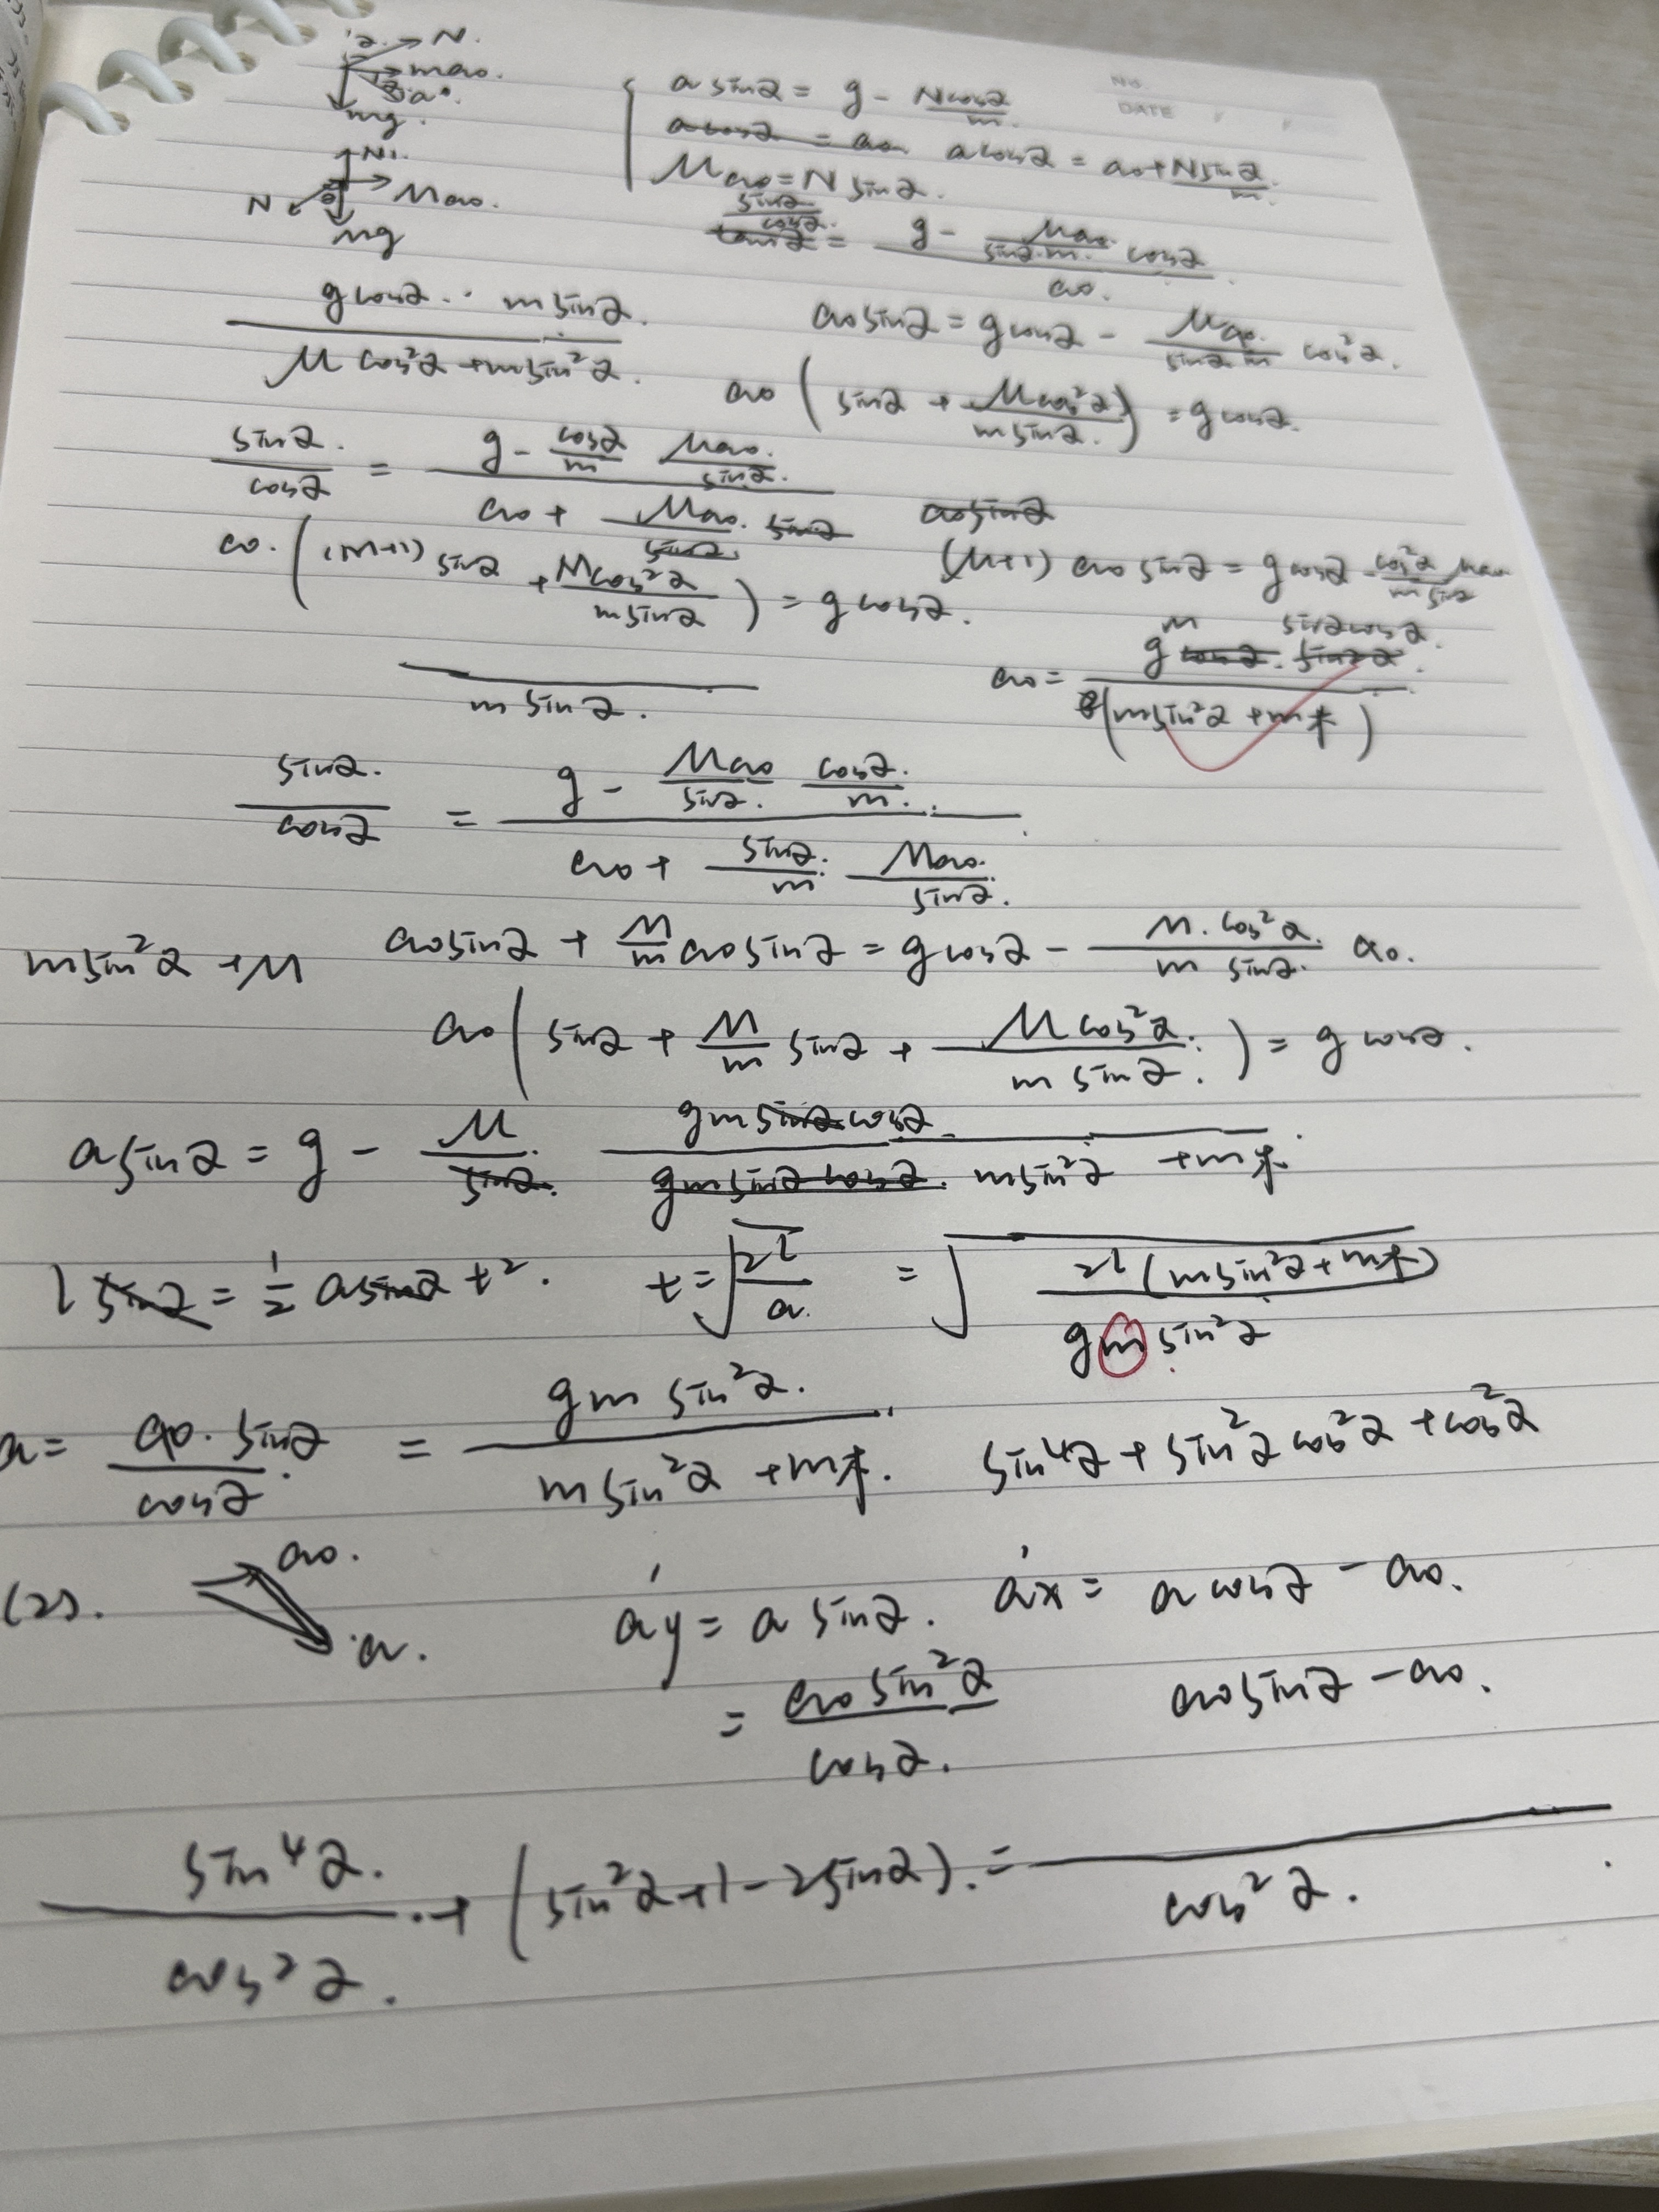 α → N.
ma₀.
α a₀.
mg.
No.
DATE
a sinα = g - Ncosα/m.
acosα = a₀ acosα = a₀ + Nsinα/m.
Ma₀ = N sinα.
N₁.
N Ma₀.
mg
sinα/cosα. tanα = (g - Ma₀/(sinα·m.) cosα)/a₀.
gcosα·· msinα. / (M cos²α + msin²α.
a₀sinα = gcosα - Ma₀./(sinα m) cos²α.
a₀ (sinα + Mcos²α/(m sinα.)) = gcosα.
sinα./cosα = (g - cosα/m Ma₀./sinα.)/(a₀ + Ma₀./sinα. sinα)
a₀sinα
a₀. ((M+1) sinα + Mcos²α/(m sinα)) = g cosα.
(M+1) a₀ sinα = gcosα - cos²α Ma₀/(m sinα)
m sinα.
a₀ = g m cosα. sinα α sinαcosα. / (msin²α + m
sinα./cosα = (g - Ma₀/sinα. cosα./m.)/(a₀ + sinα./m. Ma₀./sinα.)
msin²α + M a₀sinα + M/m a₀sinα = gcosα - M. cos²α./(m sinα.) a₀.
a₀ (sinα + M/m sinα + M cos²α./(m sinα.)) = g cosα.
a sinα = g - M/sinα. gm sinα cosα / gmsinα cosα. msin²α + m
l sinα = 1/2 a sinα t². t = √(2l/a.) = √(2l (msin²α + m ) / gm sin²α)
a = a₀. sinα/cosα. = gm sin²α./(m sin²α + m . sin⁴α + sin²α cos²α + cos²α
(2). a₀.
a.
a'y = a sinα. a'x = a cosα - a₀.
= a₀ sin²α/cosα. a₀sinα - a₀.
sin⁴α./cos²α. + (sin²α + 1 - 2sinα). = /cos²α.